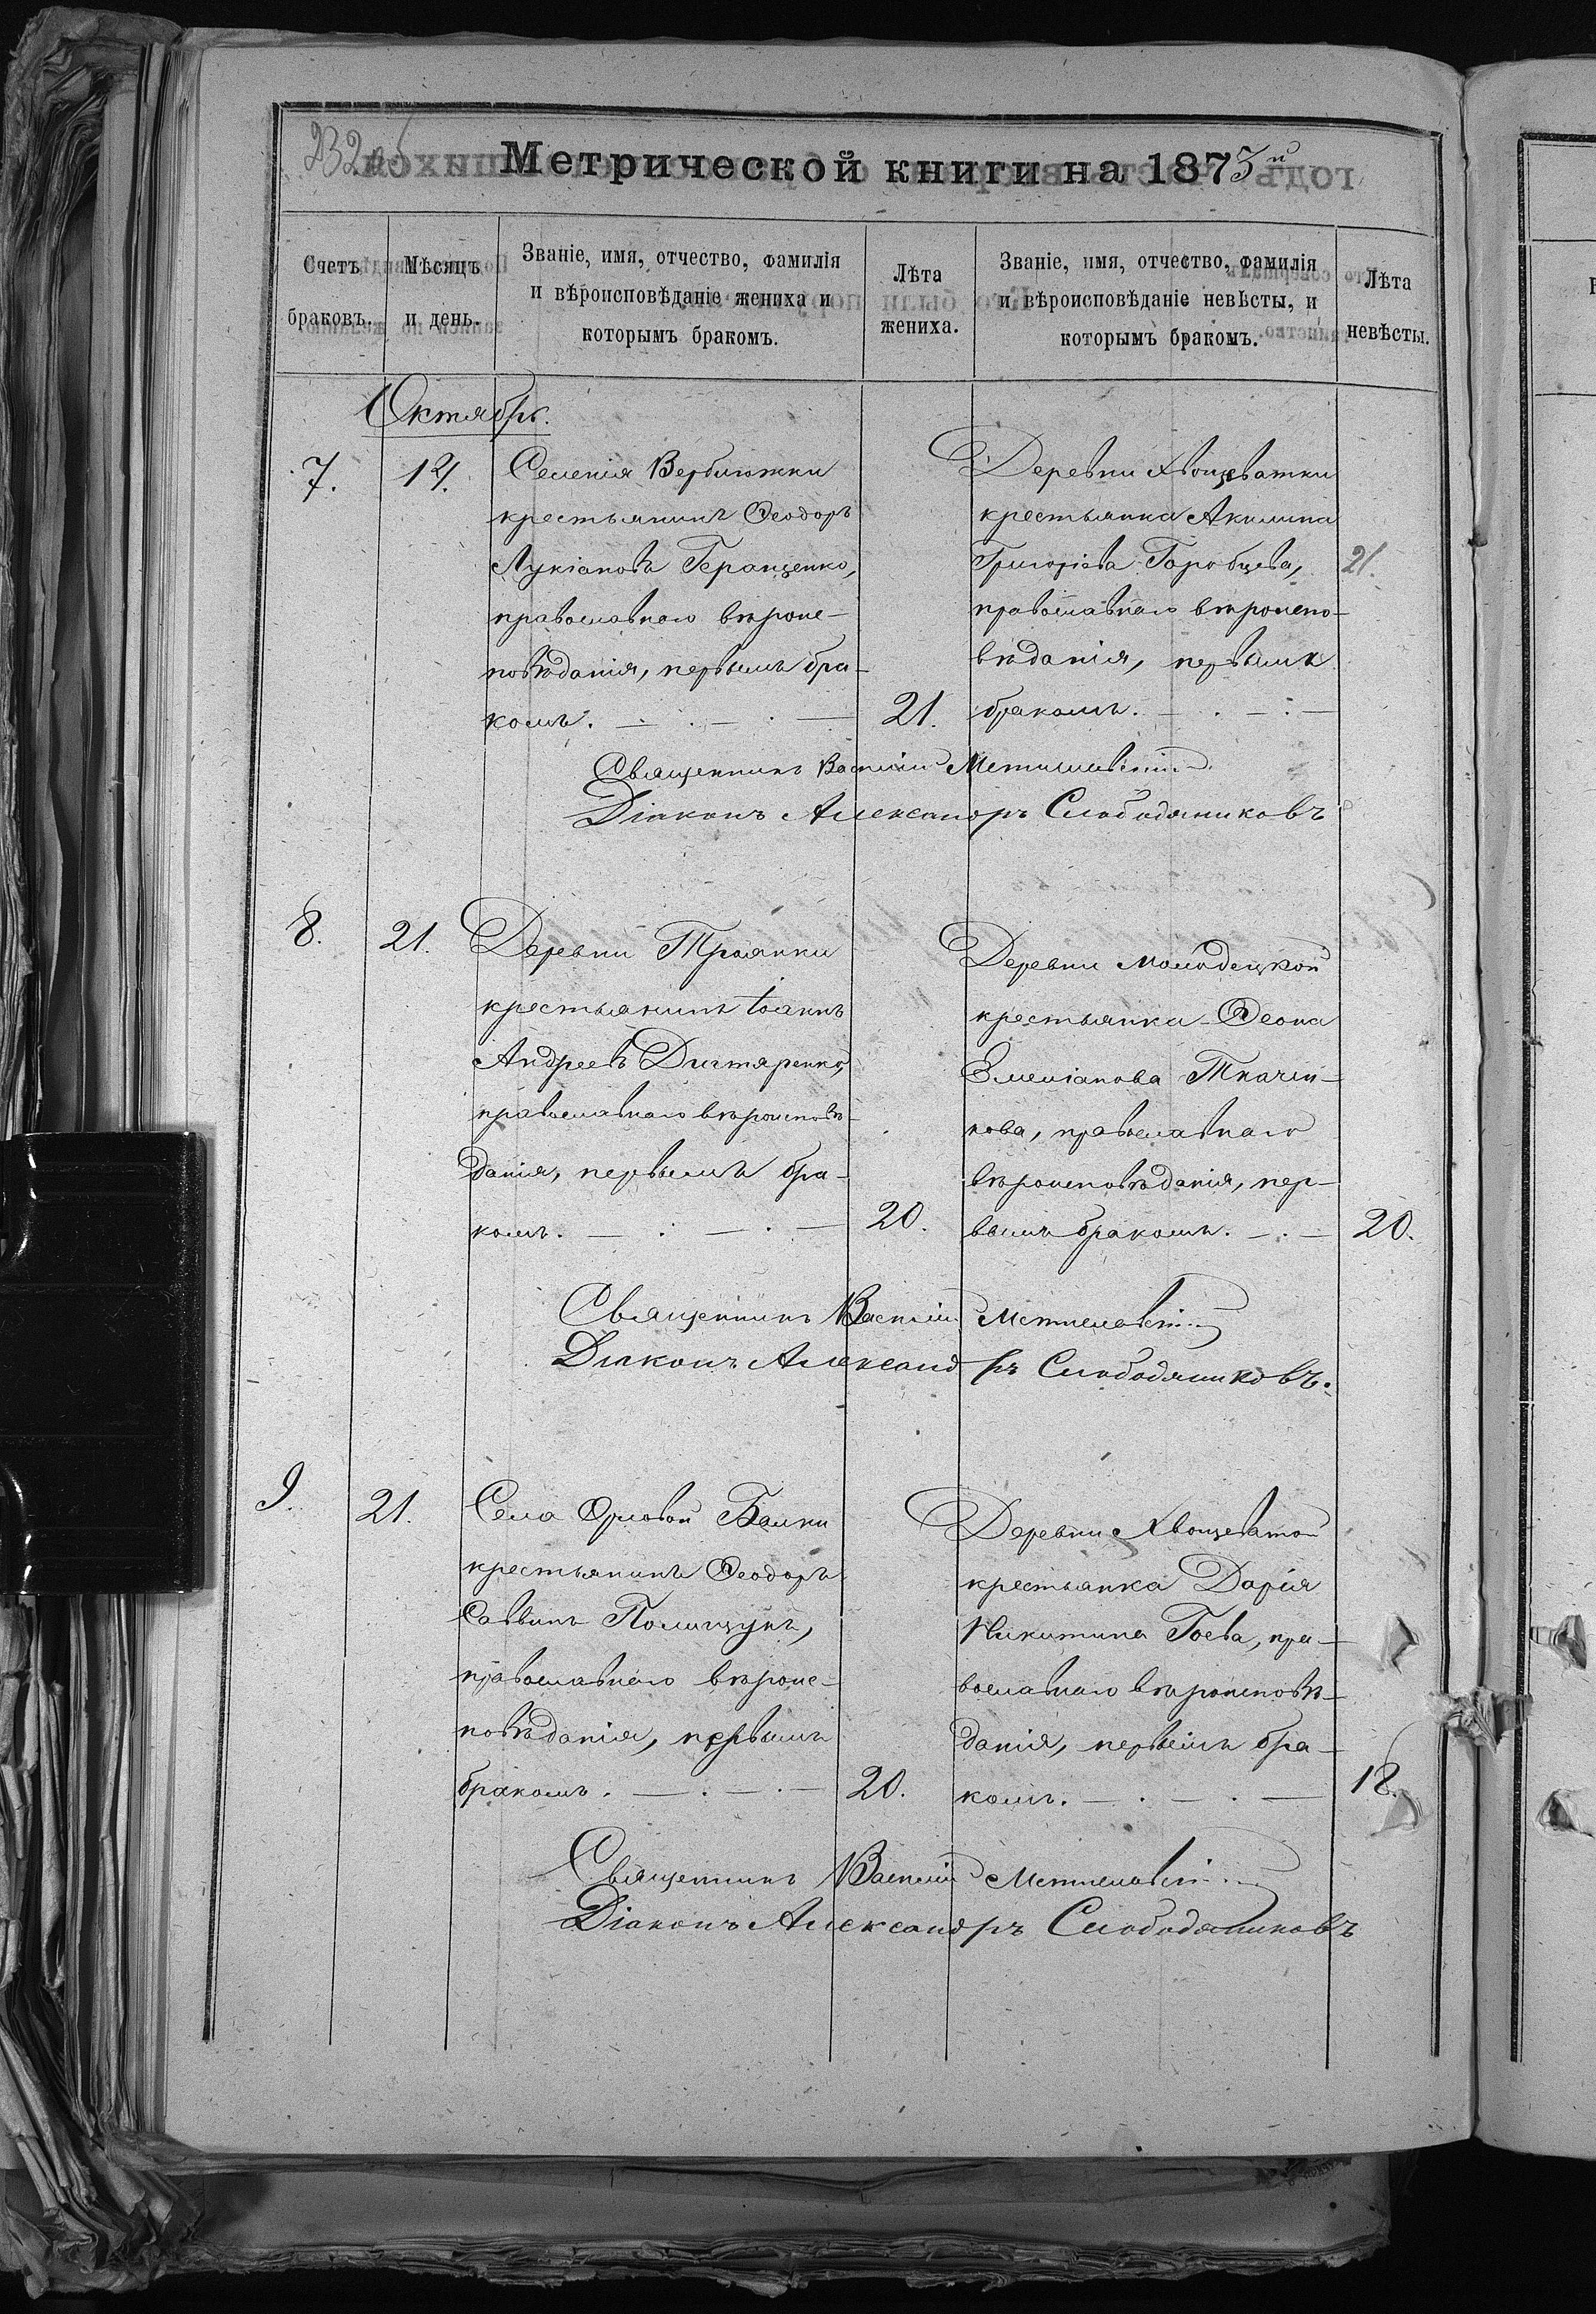 232 об
Метрической книги на 1873й
Счетъ браковъ.
Мѣсяцъ и день.
Званіе, имя, отчество, фамилія
и вѣроисповѣданіе жениха и
которымъ бракомъ.
Лѣта
жениха.
Званіе, имя, отчество, фамилія
и вѣроисповѣданіе невѣсты, и
которымъ бракомъ.
Лѣта
невѣсты.
Октябрь.
7.
Селенія Вербиюжки
крестьянинъ Ѳеодоръ
Лукіановъ Геращенко,
православнаго вѣроис-
повѣданія, первымъ бра-
комъ. — . — . —
21.
Деревни Хвощеватки
крестьянка Акилина
Григоріева Горобцева,
православнаго вѣроиспо-
вѣданія, первымъ
бракомъ. — . — . —
21.
Священникъ Василій
Діаконъ Александръ Слободяниковъ
8.
21.
Деревни Троянки
крестьянинъ Іоаннъ
Андреевъ Дихтяренко,
православнаго вѣроисповѣ-
данія, первымъ бра-
комъ. — . — . —
20.
Деревни Молодецкой
крестьянка Ѳеона
Емеліанова Ткачен-
кова, православнаго
вѣроисповѣданія, пер-
вымъ бракомъ. — . —
20.
Священникъ Василій
Діаконъ Александръ Слободяниковъ.
9.
21.
Села Орловой Балки
крестьянинъ Ѳеодоръ
Саввинъ Полищукъ,
православнаго вѣроис-
повѣданія, первымъ
бракомъ. — . — . —
20.
Деревни Хвощеватой
крестьянка Дарія
Никитина Гоева, пра-
вославнаго вѣроисповѣ-
данія, первымъ бра-
комъ. — . — . —
18.
Священникъ Василій
Діаконъ Александръ Слободяниковъ